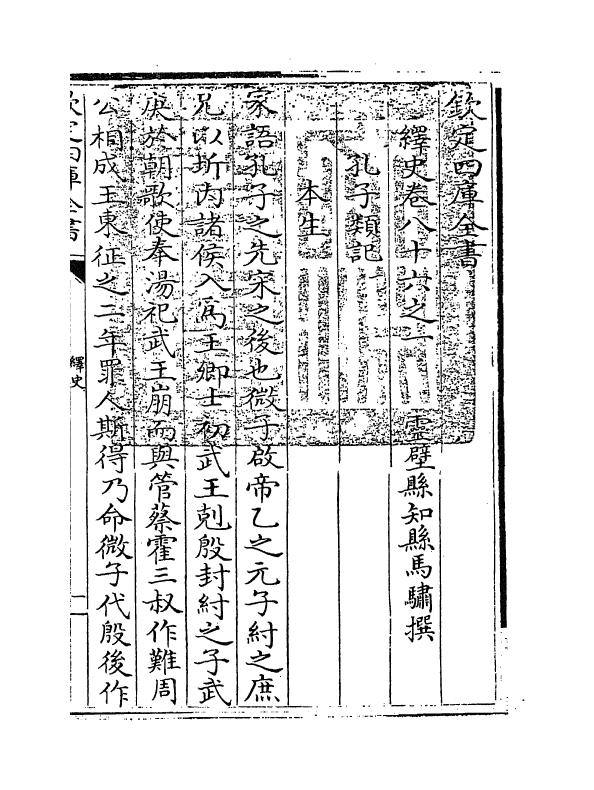 欽定四庫全書
繹史卷八十六之一 靈壁縣知縣馬驌撰
孔子類記
本生
家語孔子之先宋之後也微子啟帝乙之元子紂之庶
兄以圻内諸侯入爲王卿士初武王剋殷封紂之子武
庚於朝歌使奉湯祀武王崩而與管蔡霍三叔作難周
公相成王東征之二年罪人斯得乃命微子代殷後作
欽定四庫全書
繹史